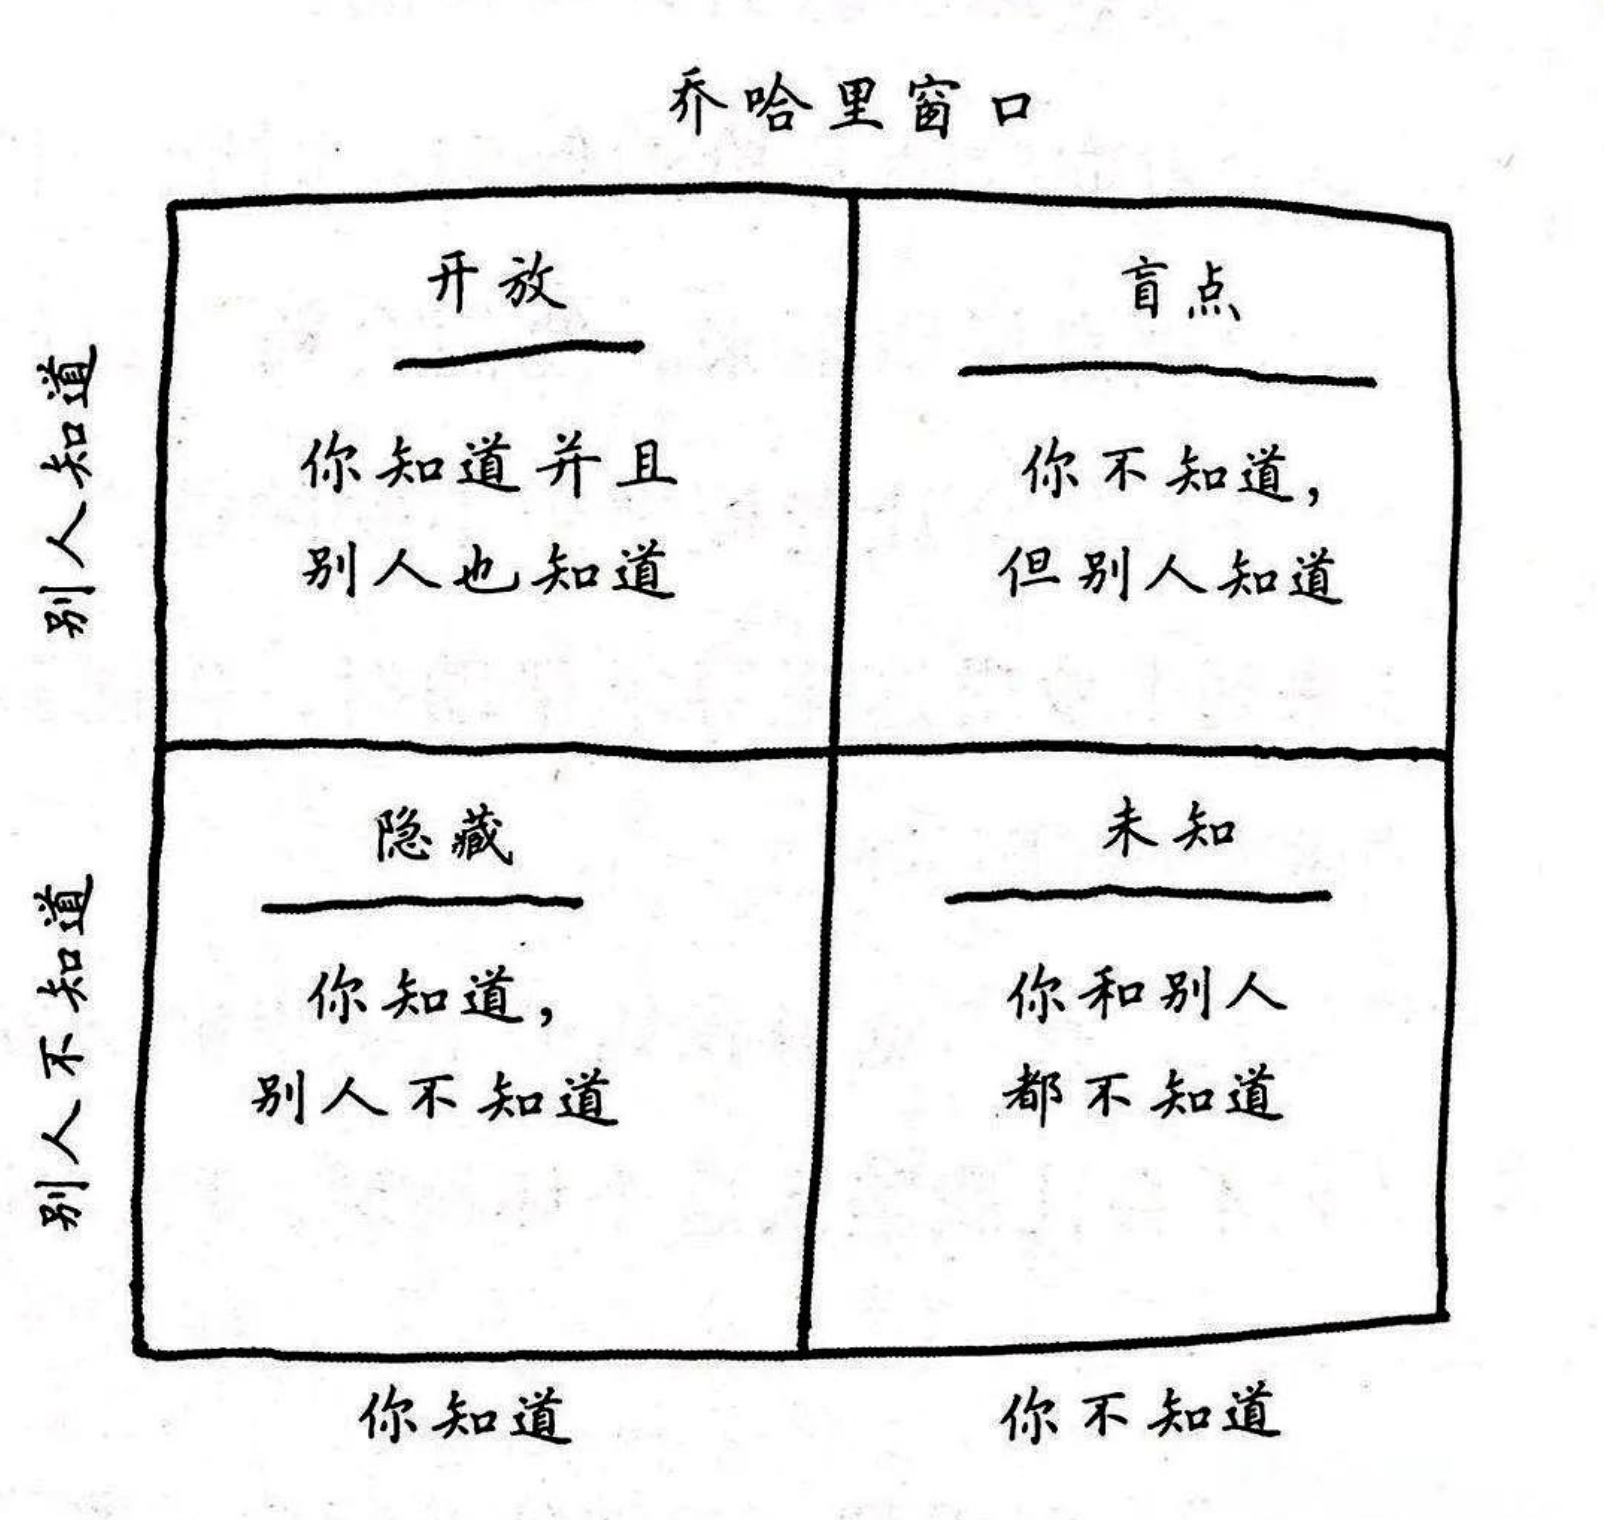 乔哈里窗口
别人知道
开放
你知道并且
别人也知道
盲点
你不知道,
但别人知道
别人不知道
隐藏
你知道,
别人不知道
未知
你和别人
都不知道
你知道
你不知道